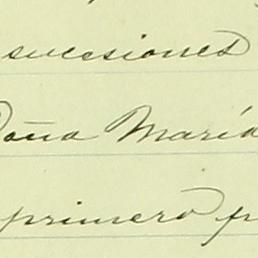 sucesiones
Doña María
primero